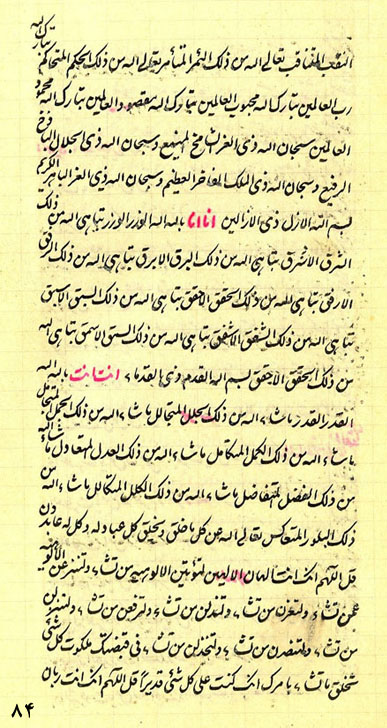 النقب المتناقب تعالى اله من ذلك الثمر المتثامر تعالى اله من ذلك الحكم المتحاكم تبارك اله
رب العالمين تبارك اله محبوب العالمين تبارك اله مقصود العالمين تبارك اله محمود
العالمين سبحان اله ذى العز الشامخ المنيع وسبحان اله ذى الجلال الباذخ
الرفيع وسبحان اله ذى الملك الفاخر العظيم وسبحان اله ذى العز الباهر الكريم
بسم الله الازل ذى الازالين انا انا باله اله الوزر الوزر تباهى اله من ذلك
الشرق الاشرق تباهى اله من ذلك البرق الابرق تباهى اله من ذلك الرفق
الارفق تباهى اله من ذلك الحقق الاحقق تباهى اله من ذلك السبق الاسبق
تباهى اله من ذلك الشفق الاشفق تباهى اله من ذلك السمق الاسمق تباهى اله
من ذلك الحقق الاحقق بسم اله القدم ذى القدماء انت انت باله اله
القدر القدر ماشاء اله من ذلك الجلل المتجالل ماشاء اله من ذلك الجمل المتجامل
ماشاء اله من ذلك الكمل المتكامل ماشاء اله من ذلك العدل المتعادل ماشاء اله
من ذلك الفضل المتفاضل ماشاء اله من ذلك الكلل المتكالل ماشاء اله من
ذلك تعالى اله عن كل ما خلق ويخلق كل عباد له وكل له عابدون
قل اللهم انك انت الهان الالهين لتؤتين الالوهية من تشاء ولتنزعن الالوهية
عمن تشاء ولتعزن من تشاء ولتذلن من تشاء ولترفعن من تشاء ولتنزلن
من تشاء ولتنصرن من تشاء ولتخذلن من تشاء فى قبضتك ملكوت كل شئ
تخلق ما تشاء بامرك انك كنت على كل شئ قديرا قل اللهم انك انت ربان
٨٤